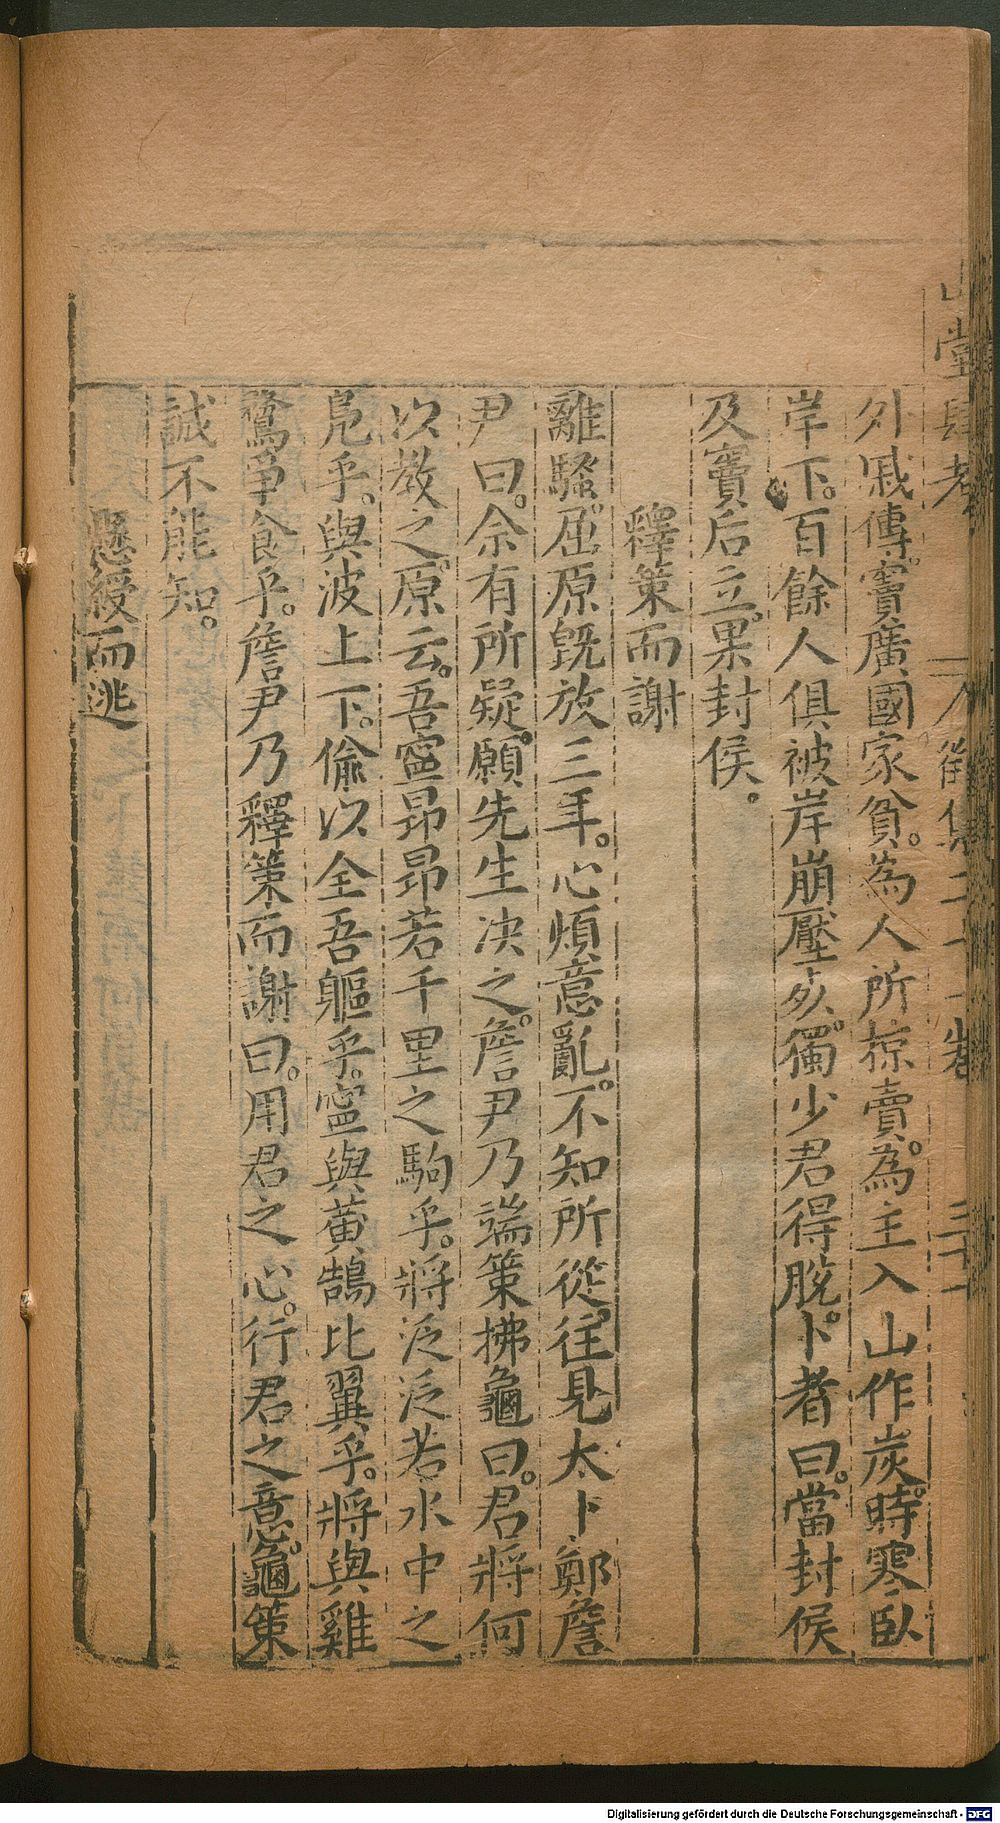 山堂肆考 人 徵集二十一卷 三十一
外戚傳。竇廣國家貧。為人所掠賣。為主入山作炭。時寒臥
岸下。百餘人俱被岸崩壓死。獨少君得脫。卜者曰。當封侯
及竇后立。果封侯。
釋策而謝
離騷。屈原旣放三年。心煩意亂。不知所從。往見太卜鄭詹
尹曰。余有所疑。願先生决之。詹尹乃端策拂龜曰。君將何
以教之。原云。吾寧昂昂若千里之駒乎。將泛泛若水中之
鳧乎。與波上下。偷以全吾軀乎。寧與黃鵠比翼乎。將與雞
鶩爭食乎。詹尹乃釋策而謝曰。用君之心。行君之意。龜策
誠不能知。
懸綬而逃
Digitalisierung gefördert durch die Deutsche Forschungsgemeinschaft - DFG